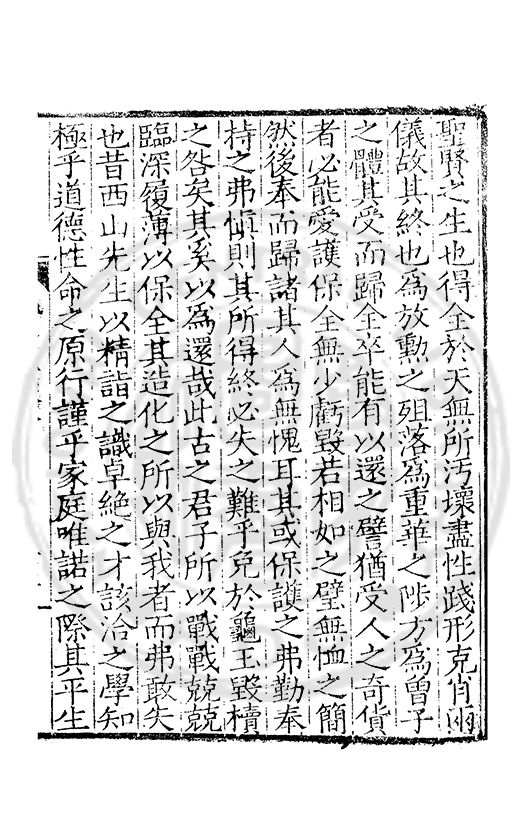 聖賢之生也得全於天無所汚壞盡性踐形克肖兩
儀故其終也爲放勲之殂落爲重華之陟方爲曾子
之體其受而歸全卒能有以還之譬猶受人之奇貨
者必能愛護保全無少虧毀若相如之璧無恤之簡
然後奉而歸諸其人爲無愧耳其或保護之弗勤奉
持之弗愼則其所得終必失之難乎免於龜玉毀櫝
之咎矣其奚以爲還哉此古之君子所以戰戰兢兢
臨深履薄以保全其造化之所以與我者而弗敢失
也昔西山先生以精詣之識卓絶之才該洽之學知
極乎道德性命之原行謹乎家庭唯諾之際其平生